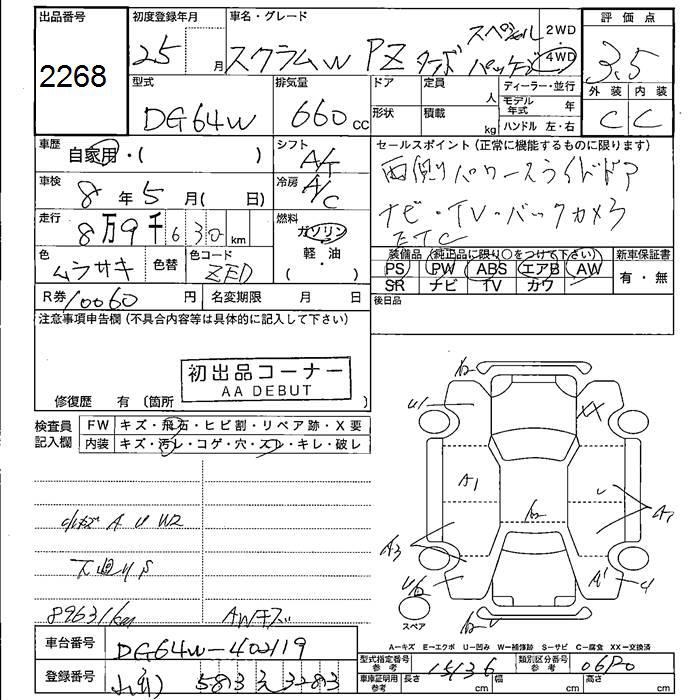 出品番号
2268
初度登録年月
25 月
車名・グレード
スクラムW PZ ターボ スペシャル パッケージ
2WD
4WD
評価点
3.5
外装 内装
C C
型式
DG64W
排気量
660 cc
ドア
形状
定員 人
積載 kg
ディーラー・並行
モデル年式 年
ハンドル 左・右
車歴
自家用・( )
シフト
A/T
車検
8 年 5 月( 日)
冷房
A/C
走行
8万9千630 km
燃料
ガソリン
軽・油
( ・ )
色
ムラサキ
色替
色コード
ZED
R券 10060 円
名変期限 月 日
セールスポイント(正常に機能するものに限ります)
両側パワースライドドア
ナビ・TV・バックカメラ
ETC
装備品(純正品に限り○をつけて下さい)
PS PW ABS エアB AW
SR ナビ TV カワ
新車保証書
有・無
後日品
注意事項申告欄(不具合内容等は具体的に記入して下さい)
初出品コーナー
AA DEBUT
修復歴 有(箇所 )
検査員記入欄
FW キズ・飛石・ヒビ割・リペア跡・X要
内装 キズ・汚レ・コゲ・穴・スレ・キレ・破レ
小キズ A U W2
下廻りS
89631km
AWキズ
車台番号
DG64W-402119
登録番号
583 え 3283
U1
XX
A1
A3
A1
スペア
A-キズ E-エクボ U-凹み W-補修跡 S-サビ C-腐食 XX-交換済
型式指定番号 参考
15136
類別区分番号 参考
車庫証明用 参考
長さ cm
幅 cm
高さ cm